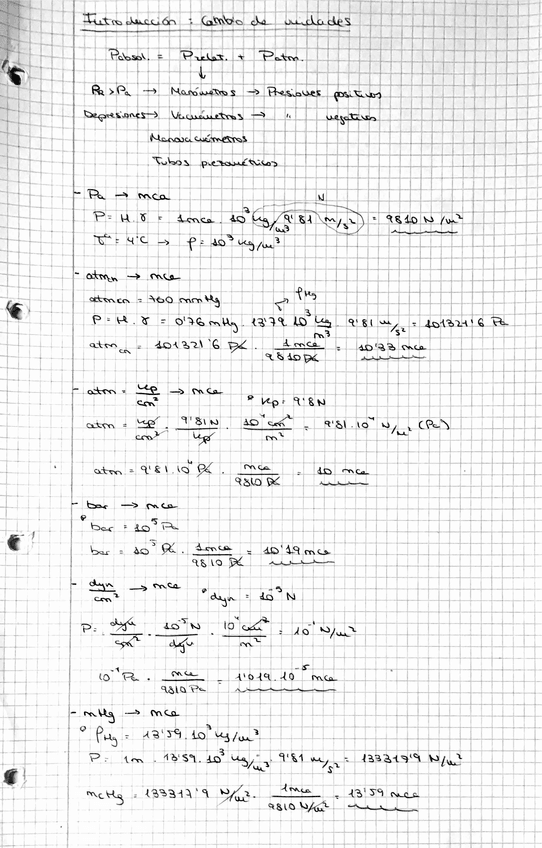 Introducción : Cambio de unidades
Pabsol. = Prelat. + Patm.
↓
PR > Pa → Manómetros → Presiones positivas
Depresiones → Vacuómetros → " negativas
Manovacuómetros
Tubos piezométricos
- Pa → mca
N
P = H . γ = 1mca . 10³ kg/m³ . 9'81 m/s² = 9810 N/m²
Tª = 4ºC → ρ = 10³ kg/m³
- atmn → mca
atmcn = 760 mmHg
ρHg
P = H . γ = 0'76 mHg . 13'79 . 10³ kg/m³ . 9'81 m/s² = 101321'6 Pa
atmcn = 101321'6 Pa . 1mca / 9810 Pa = 10'33 mca
- atm = kp/cm² → mca
° kp = 9'8N
atm = kp/cm² . 9'81N/kp . 10⁴ cm²/m² = 9'81 . 10⁴ N/m² (Pa)
atm = 9'81 . 10⁴ Pa . mca / 9810 Pa = 10 mca
- bar → mca
° bar = 10⁵ Pa
bar = 10⁵ Pa . 1mca / 9810 Pa = 10'19 mca
- dyn/cm² → mca ° dyn = 10⁻⁵ N
P = dyn/cm² . 10⁻⁵ N/dyn . 10⁴ cm²/m² = 10⁻¹ N/m²
10⁻¹ Pa . mca / 9810 Pa = 1'019 . 10⁻⁵ mca
- mHg → mca
° ρHg = 13'59 . 10³ kg/m³
P = 1m . 13'59 . 10³ kg/m³ . 9'81 m/s² = 133317'9 N/m²
mcHg = 133317'9 N/m² . 1mca / 9810 N/m² = 13'59 mca